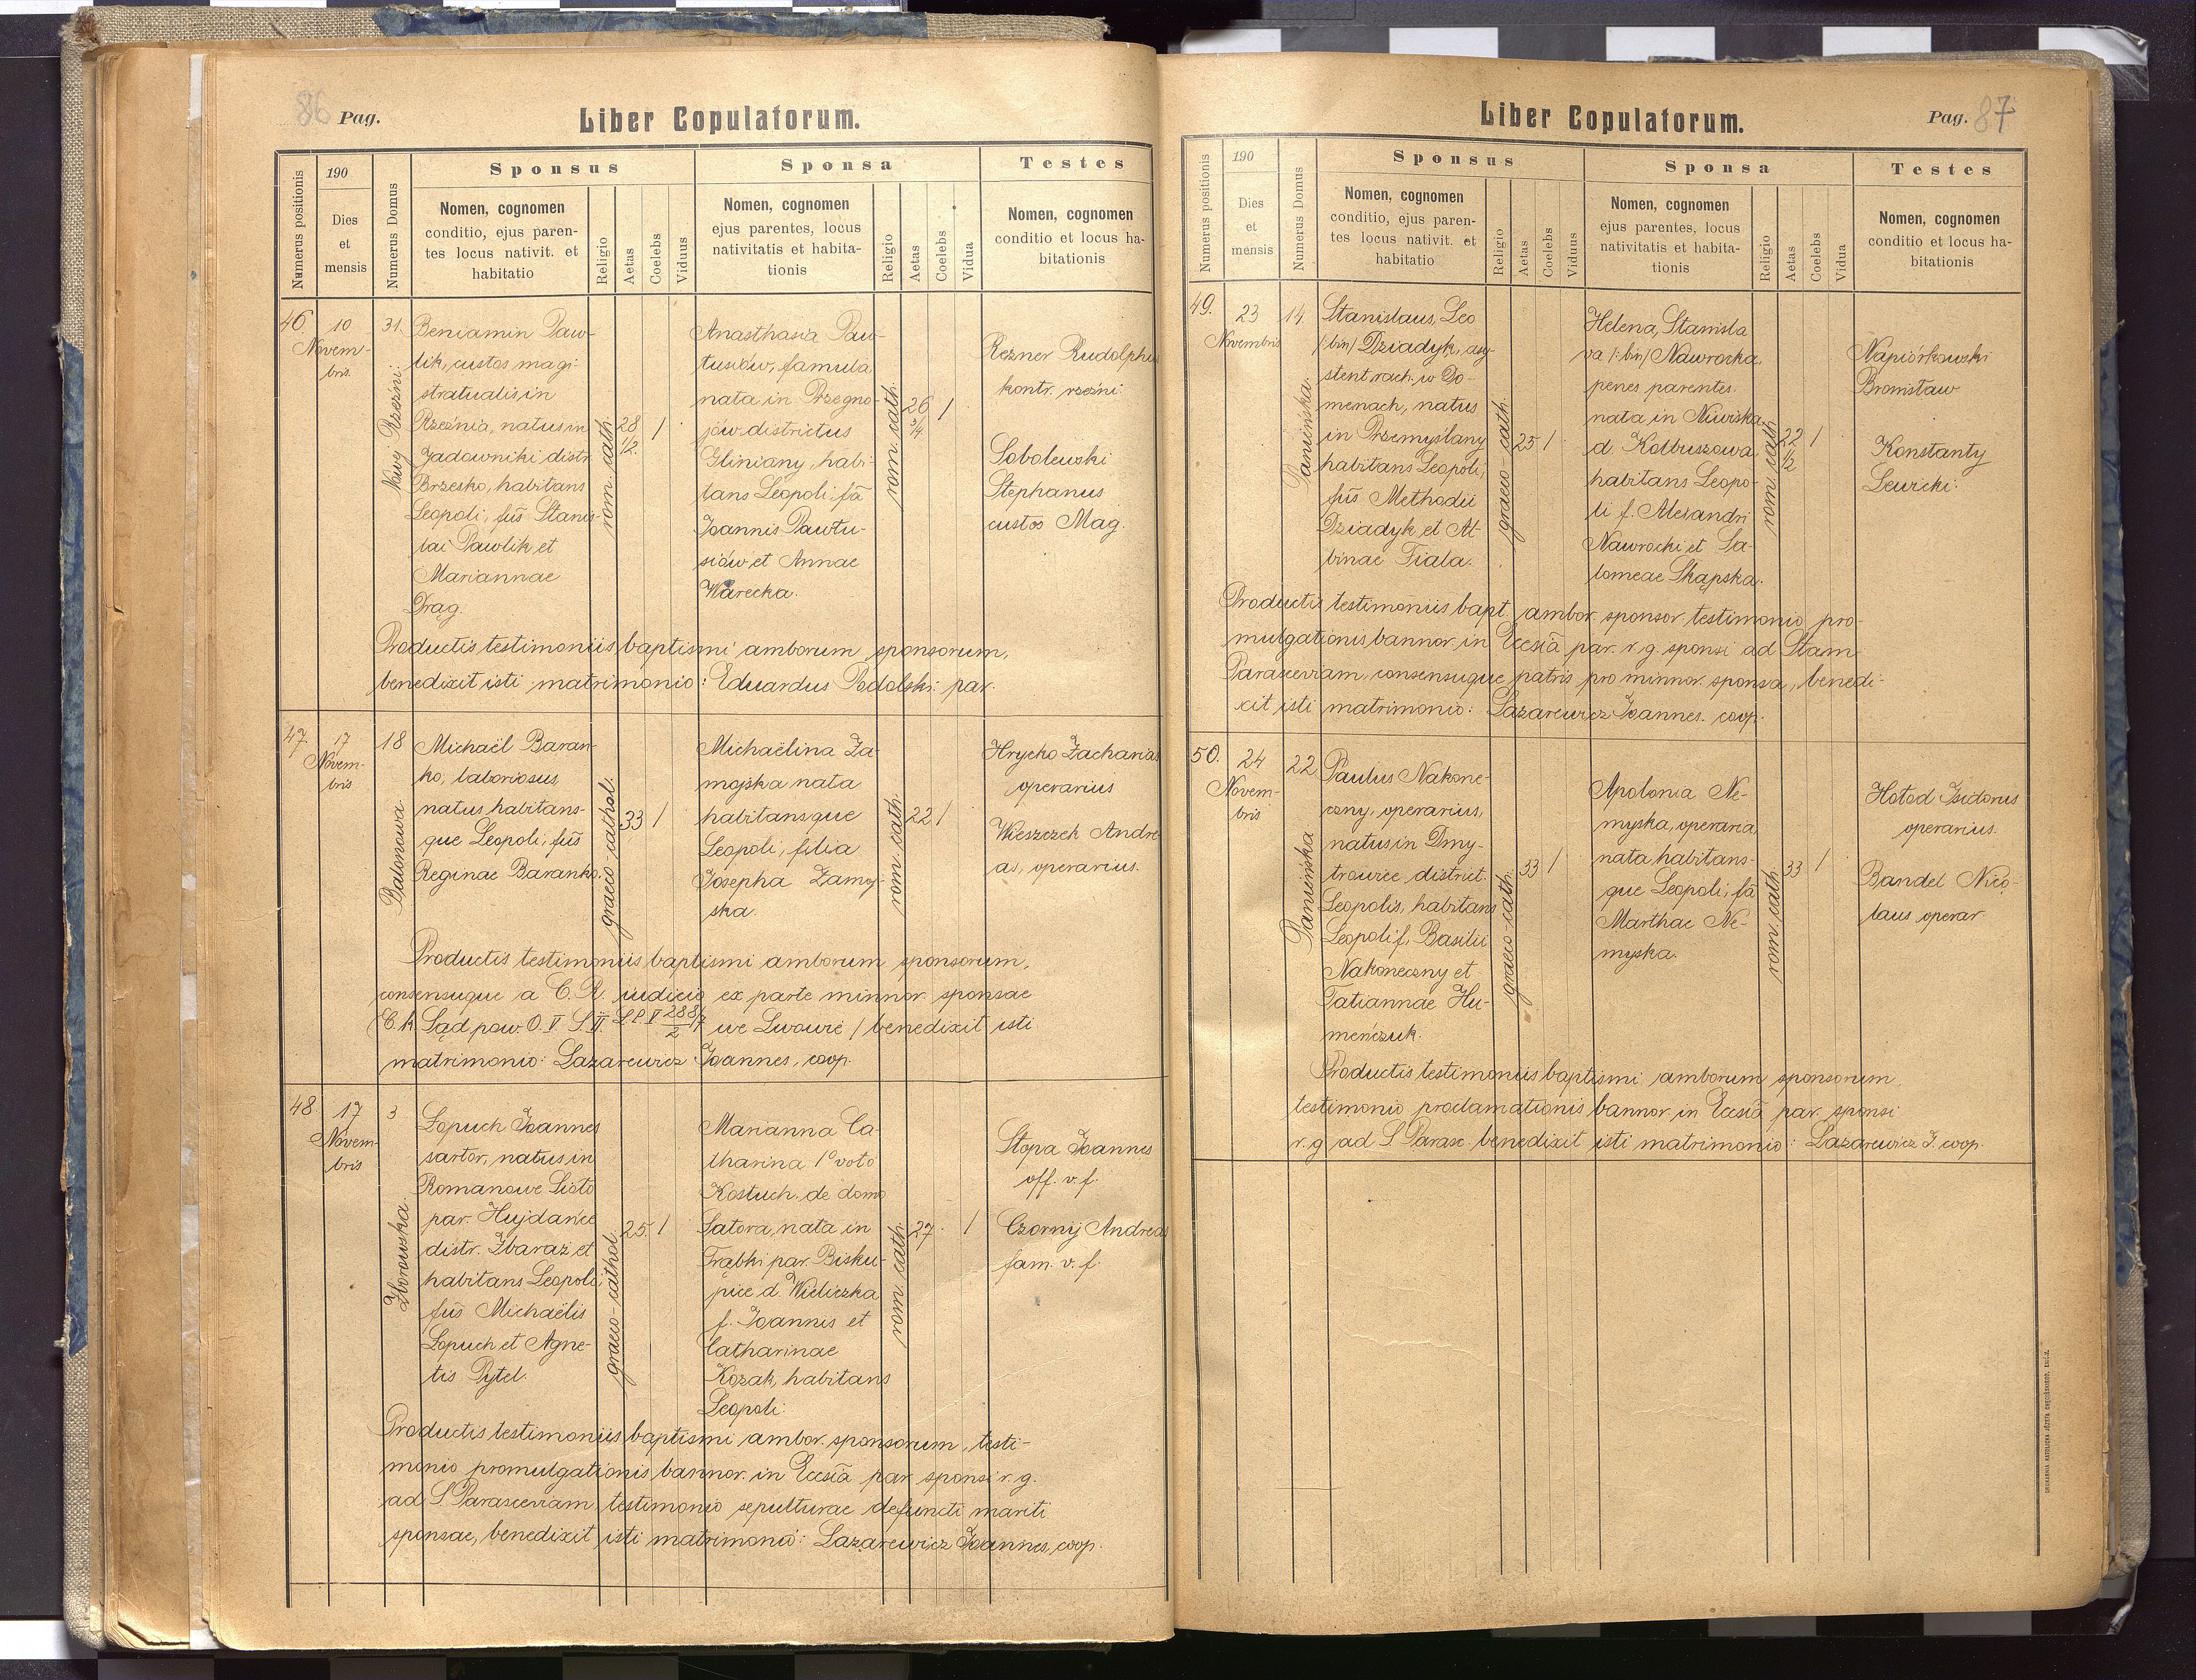 86 Pag.
Liber Copulatorum.
Numerus positionis
190
Dies
et
mensis
Numerus Domus
Sponsus
Nomen, cognomen
conditio, ejus paren-
tes locus nativit. et
habitatio
Religio
Aetas
Coelebs
Viduus
Sponsa
Nomen, cognomen
ejus parentes, locus
nativitatis et habita-
tionis
Religio
Aetas
Coelebs
Vidua
Testes
Nomen, cognomen
conditio et locus ha-
bitationis
46.
10
Novem-
bris.
31.
Nowej Rzeźni.
Beniamin Paw-
lik, custos magi-
stratualis in
Rzeźnia, natus in
Jadowniki distr.
Brzesko, habitans
Leopoli, fus Stanis-
lai Pawlik et
Mariannae
Drąg.
rom. cath.
28
1/2
1
Anasthasia Paw-
tusiów, famula,
nata in Przegno-
jów districtus
Gliniany, habi-
tans Leopoli, fa
Joannis Pawtu-
siów et Annae
Warecka.
rom. cath.
26
3/4
1
Rezner Rudolphus
kontr. rzeźni
Sobolewski
Stephanus
custos Mag.
Productis testimoniis baptismi amborum sponsorum,
benedixit isti matrimonio: Eduardus Podolski par.
47.
17
Novem-
bris
18
Balonowa.
Michaël Baran-
ko, laboriosus,
natus, habitans-
que Leopoli, fus
Reginae Baranko.
graeco-cathol.
33
1
Michaëlina Za-
mojska nata
habitansque
Leopoli, filia
Josepha Zamoj-
ska.
rom. cath.
22
1
Hrycko Zacharias
operarius
Wieszczek Andre-
as, operarius.
Productis testimoniis baptismi amborum sponsorum,
consensuque a C. R. iudicio ex parte minnor. sponsae
C. k. Sąd pow O. V S. II L P V 288/7 2 we Lwowie / benedixit isti
matrimonio: Lazarewicz Joannes, coop.
48.
17
Novem-
bris
3
Zborowska.
Łopuch Joannes
sartor, natus in
Romanowe Sioło
par. Hujdańce
distr. Zbaraż et
habitans Leopoli,
fus Michaëlis
Łopuch et Agne-
tis Pytel.
graeco-cathol.
25.
1
Marianna Ca-
tharina 1º voto
Kostuch de domo
Satora, nata in
Trąbki par. Bisku-
pice d. Wieliczka
f. Joannis et
Catharinae
Kozak, habitans
Leopoli.
rom. cath.
27
1
Stopa Joannes
off. v. f.
Czornij Andreas
fam. v. f.
Productis testimoniis baptismi ambor. sponsorum, testi-
monio promulgationis bannor. in Eccsiā par. sponsi r. g.
ad S. Parasceviam, testimonio sepulturae defuncti mariti
sponsae, benedixit isti matrimonio: Lazarewicz Joannes, coop.
Liber Copulatorum.
Pag. 87
Numerus positionis
190
Dies
et
mensis
Numerus Domus
Sponsus
Nomen, cognomen
conditio, ejus paren-
tes locus nativit. et
habitatio
Religio
Aetas
Coelebs
Viduus
Sponsa
Nomen, cognomen
ejus parentes, locus
nativitatis et habita-
tionis
Religio
Aetas
Coelebs
Vidua
Testes
Nomen, cognomen
conditio et locus ha-
bitationis
49.
23
Novembris
14.
Panieńska.
Stanislaus, Leo
/: bin/ Dziadyk, asy-
stent rach. w Do-
menach, natus
in Przemyślany
habitans Leopoli,
fus Methodii
Dziadyk et Al-
binae Fiala.
graeco-cath.
25
1
Helena, Stanisla
va /: bin/ Nawrocka,
penes parentes.
nata in Niwiska,
d. Kolbuszowa,
habitans Leopo-
li f. Alexandri
Nawrocki et Sa-
lomeae Skąpska.
rom. cath.
22
1/2
1
Napiórkowski
Bronisław
Konstanty
Lewicki.
Productis testimoniis bapt. ambor. sponsor. testimonio pro-
mulgationis bannor. in Eccsiā par. r. g. sponsi ad Stam
Parasceviam, consensuque patris pro minnor. sponsa, benedi-
xit isti matrimonio: Lazarewicz Joannes. coop.
50.
24
Novem-
bris
22
Panieńska
Paulus Nakone-
czny, operarius,
natus in Dmy-
trowice district.
Leopolis, habitans
Leopoli f. Basilii
Nakoneczny et
Tatiannae Hu-
meńczuk.
graeco-cath.
33
1
Apolonia Ne-
myska, operaria,
nata habitans-
que Leopoli, fa
Marthae Ne-
myska.
rom. cath.
33
1
Hołod Isidorus
operarius.
Bandel Nico-
laus operar
Productis testimoniis baptismi amborum sponsorum,
testimonio proclamationis bannor. in Eccsiā par. sponsi
r. g. ad S. Parasc. benedixit isti matrimonio: Lazarewicz J. coop.